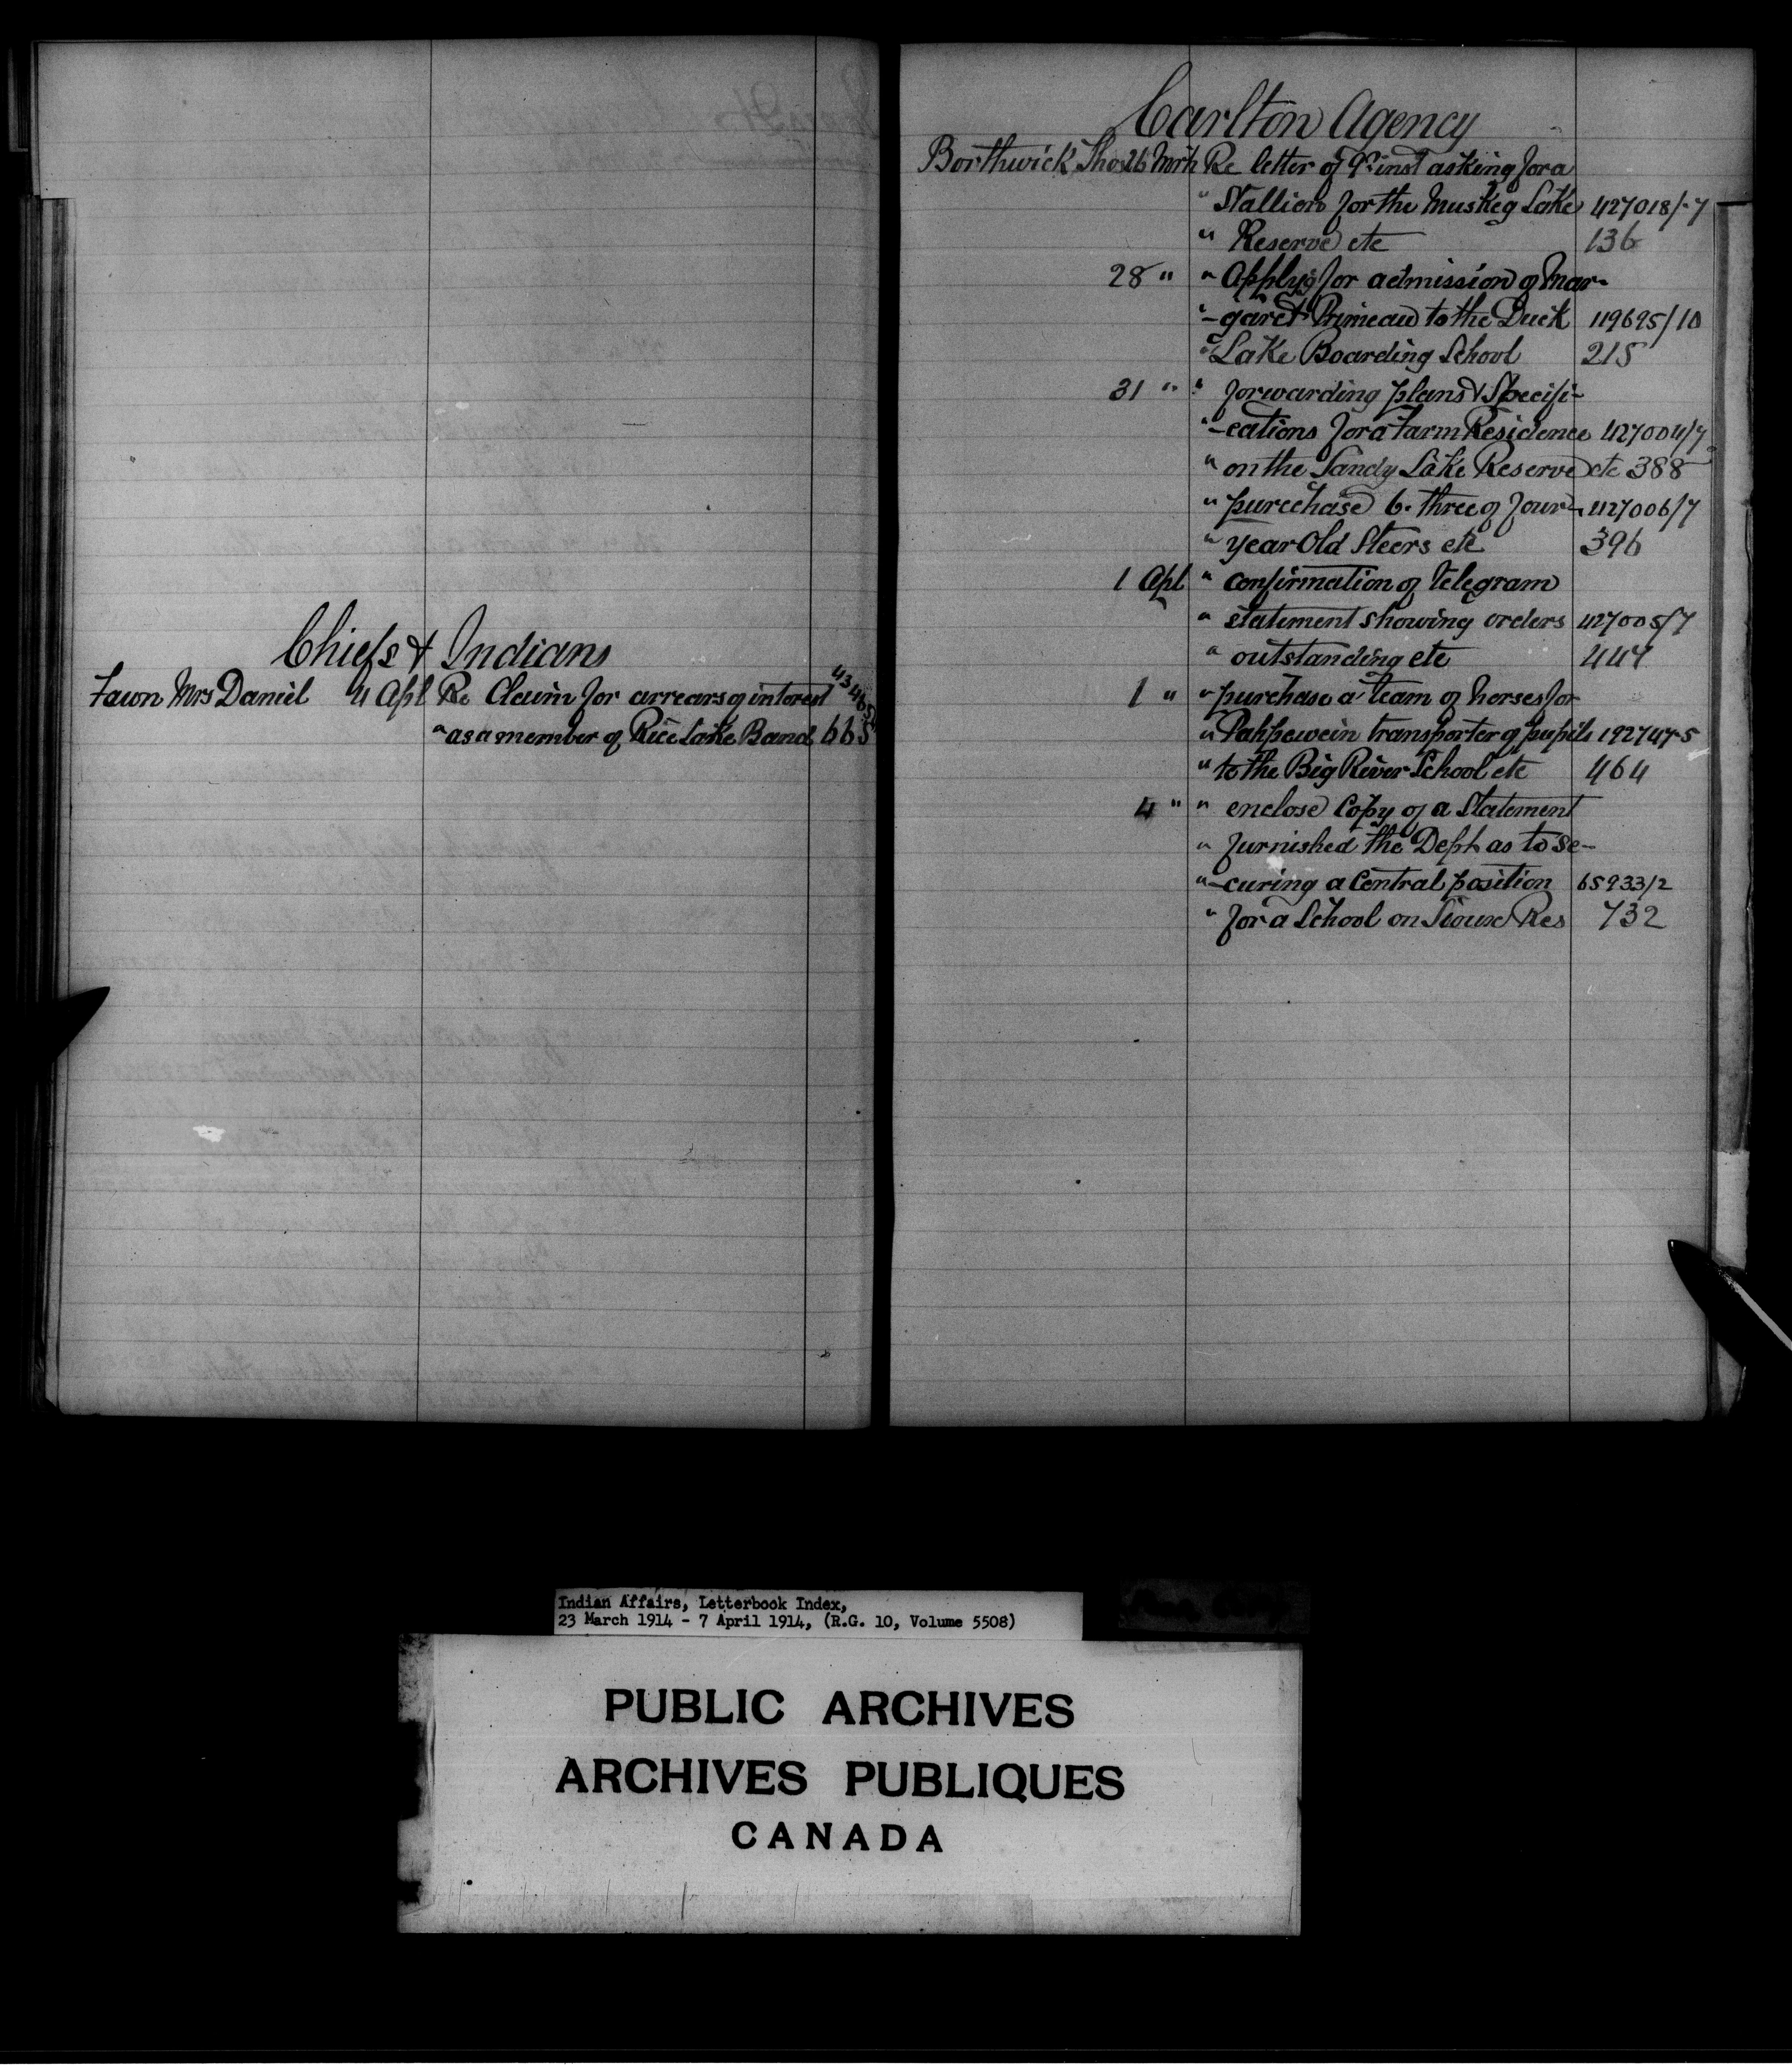 Chiefs & Indians
Fawn Mrs Daniel 4 Apl Re Claim for arrears of interest 43465
" as a member of Rice Lake Band 665
Carlton Agency
Borthwick Thos 26 Mrh Re letter of 9th inst asking for a
" Stallion for the Muskeg Lake 427018/-7
" Reserve etc 136
28 " " Applyg for admission of Mar-
" -garet Primeau to the Duck 119695/10
" Lake Boarding School 215
31 " " forwarding plans & Specifi-
" -cations for a Farm Residence 427004/7
" on the Sandy Lake Reserve etc 388
" purcchase 6. three of four- 427006/7
" year Old Steers etc 396
1 Apl " confirmation of telegram
" statement showing orders 427005/7
" outstanding etc 447
1 " " purchase a team of horses for
" Pahpewein transporter of pupils 192747-5
" to the Big River School etc 464
4 " " enclose Copy of a Statement
" furnished the Dept as to se-
" -curing a Central position 65933/2
" for a School on Sioux Res 732
Indian Affairs, Letterbook Index,
23 March 1914 - 7 April 1914, (R.G. 10, Volume 5508)
PUBLIC ARCHIVES
ARCHIVES PUBLIQUES
CANADA